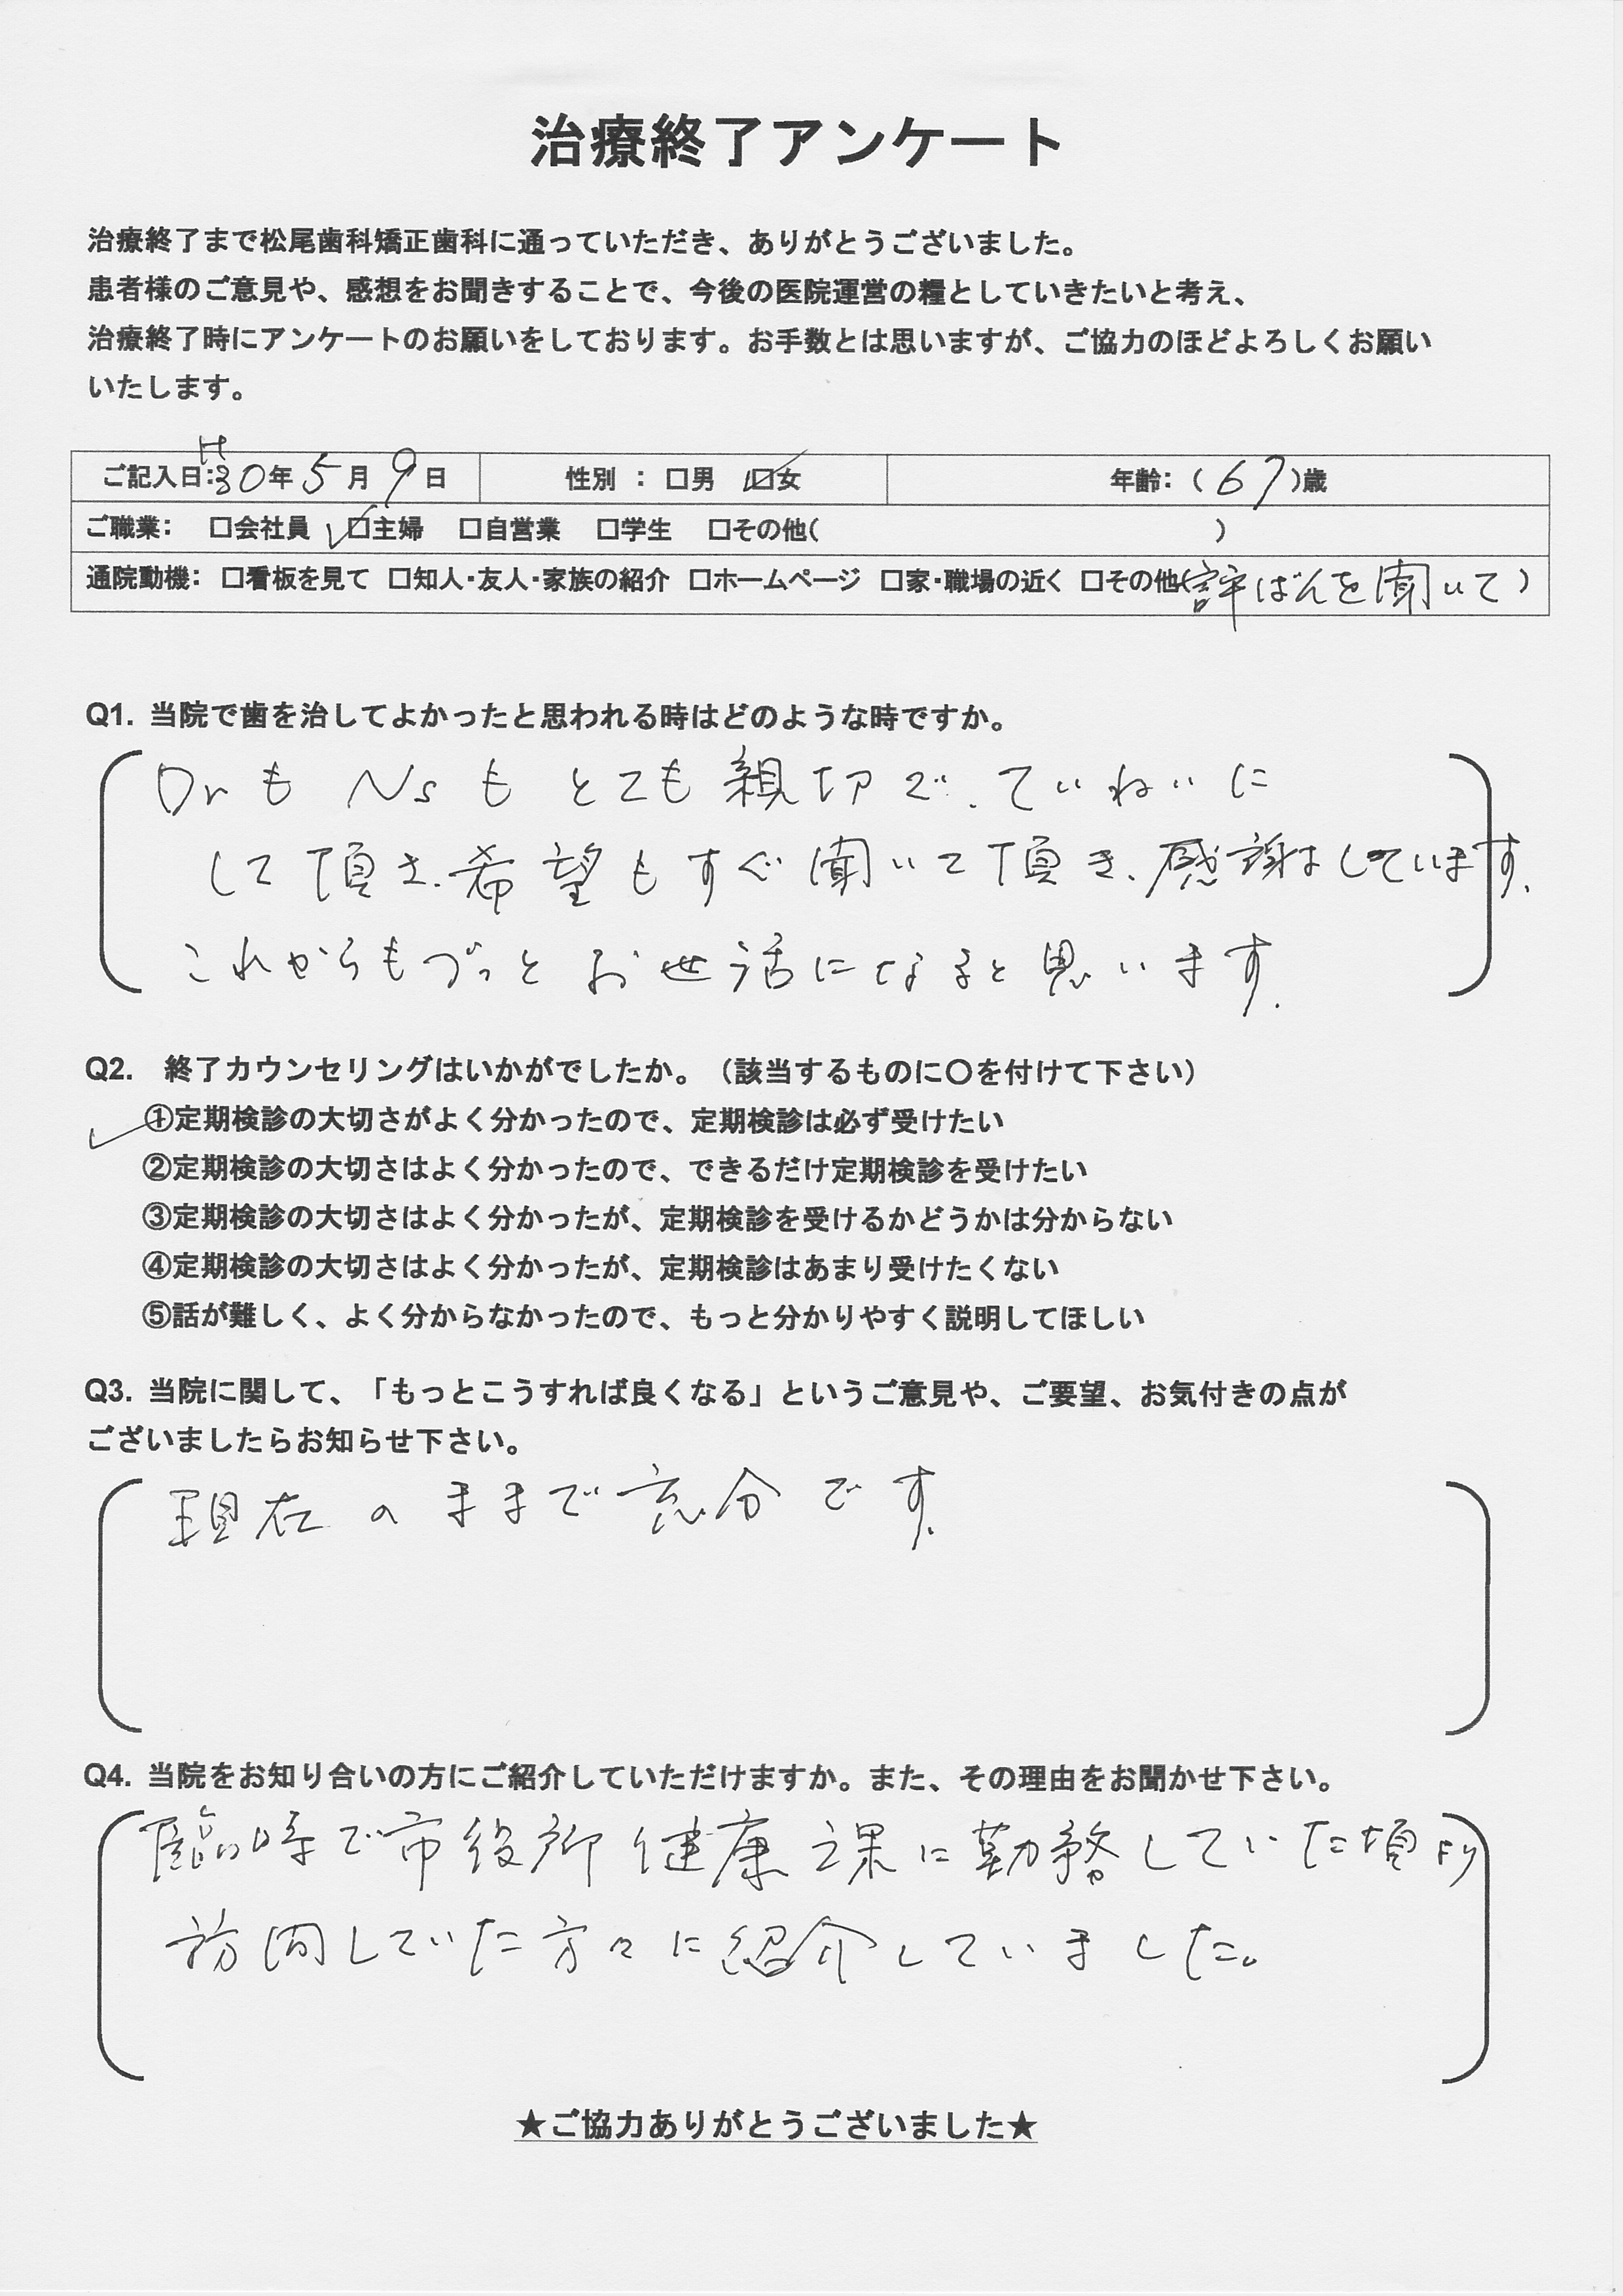 治療終了アンケート
治療終了まで松尾歯科矯正歯科に通っていただき、ありがとうございました。
患者様のご意見や、感想をお聞きすることで、今後の医院運営の糧としていきたいと考え、
治療終了時にアンケートのお願いをしております。お手数とは思いますが、ご協力のほどよろしくお願い
いたします。
ご記入日:H30年5月9日 性別 : □男 ☑女 年齢:(67)歳
ご職業: □会社員 ☑主婦 □自営業 □学生 □その他( )
通院動機: □看板を見て □知人・友人・家族の紹介 □ホームページ □家・職場の近く □その他(評ばんを聞いて)
Q1. 当院で歯を治してよかったと思われる時はどのような時ですか。
Dr も Ns も とても親切で、ていねいに
して頂き、希望もすぐ聞いて頂き、感謝しています。
これからもずっとお世話になると思います。
Q2. 終了カウンセリングはいかがでしたか。（該当するものに〇を付けて下さい）
✓①定期検診の大切さがよく分かったので、定期検診は必ず受けたい
②定期検診の大切さはよく分かったので、できるだけ定期検診を受けたい
③定期検診の大切さはよく分かったが、定期検診を受けるかどうかは分からない
④定期検診の大切さはよく分かったが、定期検診はあまり受けたくない
⑤話が難しく、よく分からなかったので、もっと分かりやすく説明してほしい
Q3. 当院に関して、「もっとこうすれば良くなる」というご意見や、ご要望、お気付きの点が
ございましたらお知らせ下さい。
現在のままで充分です。
Q4. 当院をお知り合いの方にご紹介していただけますか。また、その理由をお聞かせ下さい。
臨時で市役所健康課に勤務していた頃より
訪問していた方々に紹介していました。
★ご協力ありがとうございました★